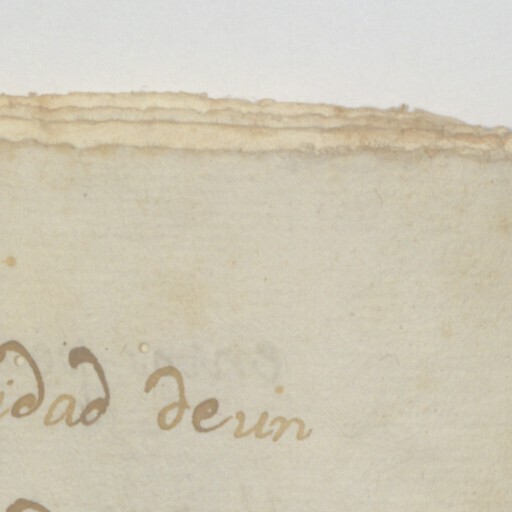 idad de un